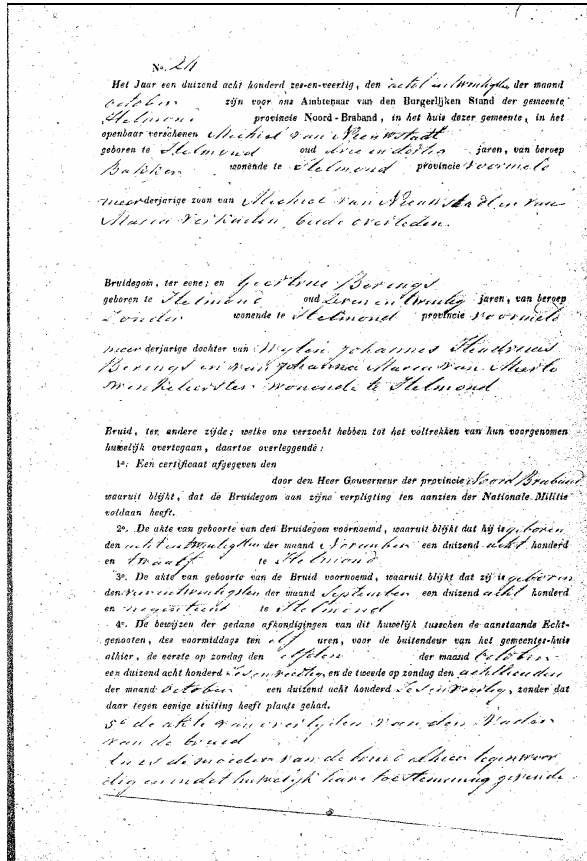 No. 24
Het Jaar een duizend acht honderd zes-en-veertig, den acht en twintigste der maand
October zijn voor ons Ambtenaar van den Burgerlijken Stand der gemeente
Helmond provincie Noord-Braband, in het huis dezer gemeente, in het
openbaar verschenen Michiel van Nieuwstadt
geboren te Helmond oud drie en dertig jaren, van beroep
Bakker wonende te Helmond provincie voormeld
meerderjarige zoon van Michiel van Nieuwstadt en van
Maria Verkuilen, beide overleden.
Bruidegom, ter eene; en Geertrui Berings
geboren te Helmond oud zeven en twintig jaren, van beroep
Zonder wonende te Helmond provincie voormeld
meer derjarige dochter van Wylen Johannes Hendricus
Berings en van Johanna Maria van Mierlo
winkelierster wonende te Helmond
Bruid, ter andere zijde; welke ons verzocht hebben tot het voltrekken van hun voorgenomen
huwelijk overtegaan, daartoe overleggende:
1o: Een certificaat afgegeven den
door den Heer Gouverneur der provincie Noord Braband
waaruit blijkt, dat de Bruidegom aan zijne verpligting ten aanzien der Nationale Militie
voldaan heeft.
2o. De akte van geboorte van den Bruidegom voornoemd, waaruit blijkt dat hij is geboren
den acht en twintigsten der maand November een duizend acht honderd
en twaalf te Helmond
3o. De akte van geboorte van de Bruid voornoemd, waaruit blijkt dat zij is geboren
den der maand September een duizend acht honderd
en negentien te Helmond
4o. De bewijzen der gedane afkondigingen van dit huwelijk tusschen de aanstaande Echt-
genooten, des voormiddags ten elf uren, voor de buitendeur van het gemeentes-huis
alhier, de eerste op zondag den elfden der maand October
een duizend acht honderd zes en veertig, en de tweede op zondag den achttienden
der maand October een duizend acht honderd zes en veertig, zonder dat
daar tegen eenige stuiting heeft plaats gehad.
5o de akte van overlyden van den Vader
van de bruid
En is de moeder van de bruid alhier tegenwoor
dig en in det huwelijk hare toestemming gevende